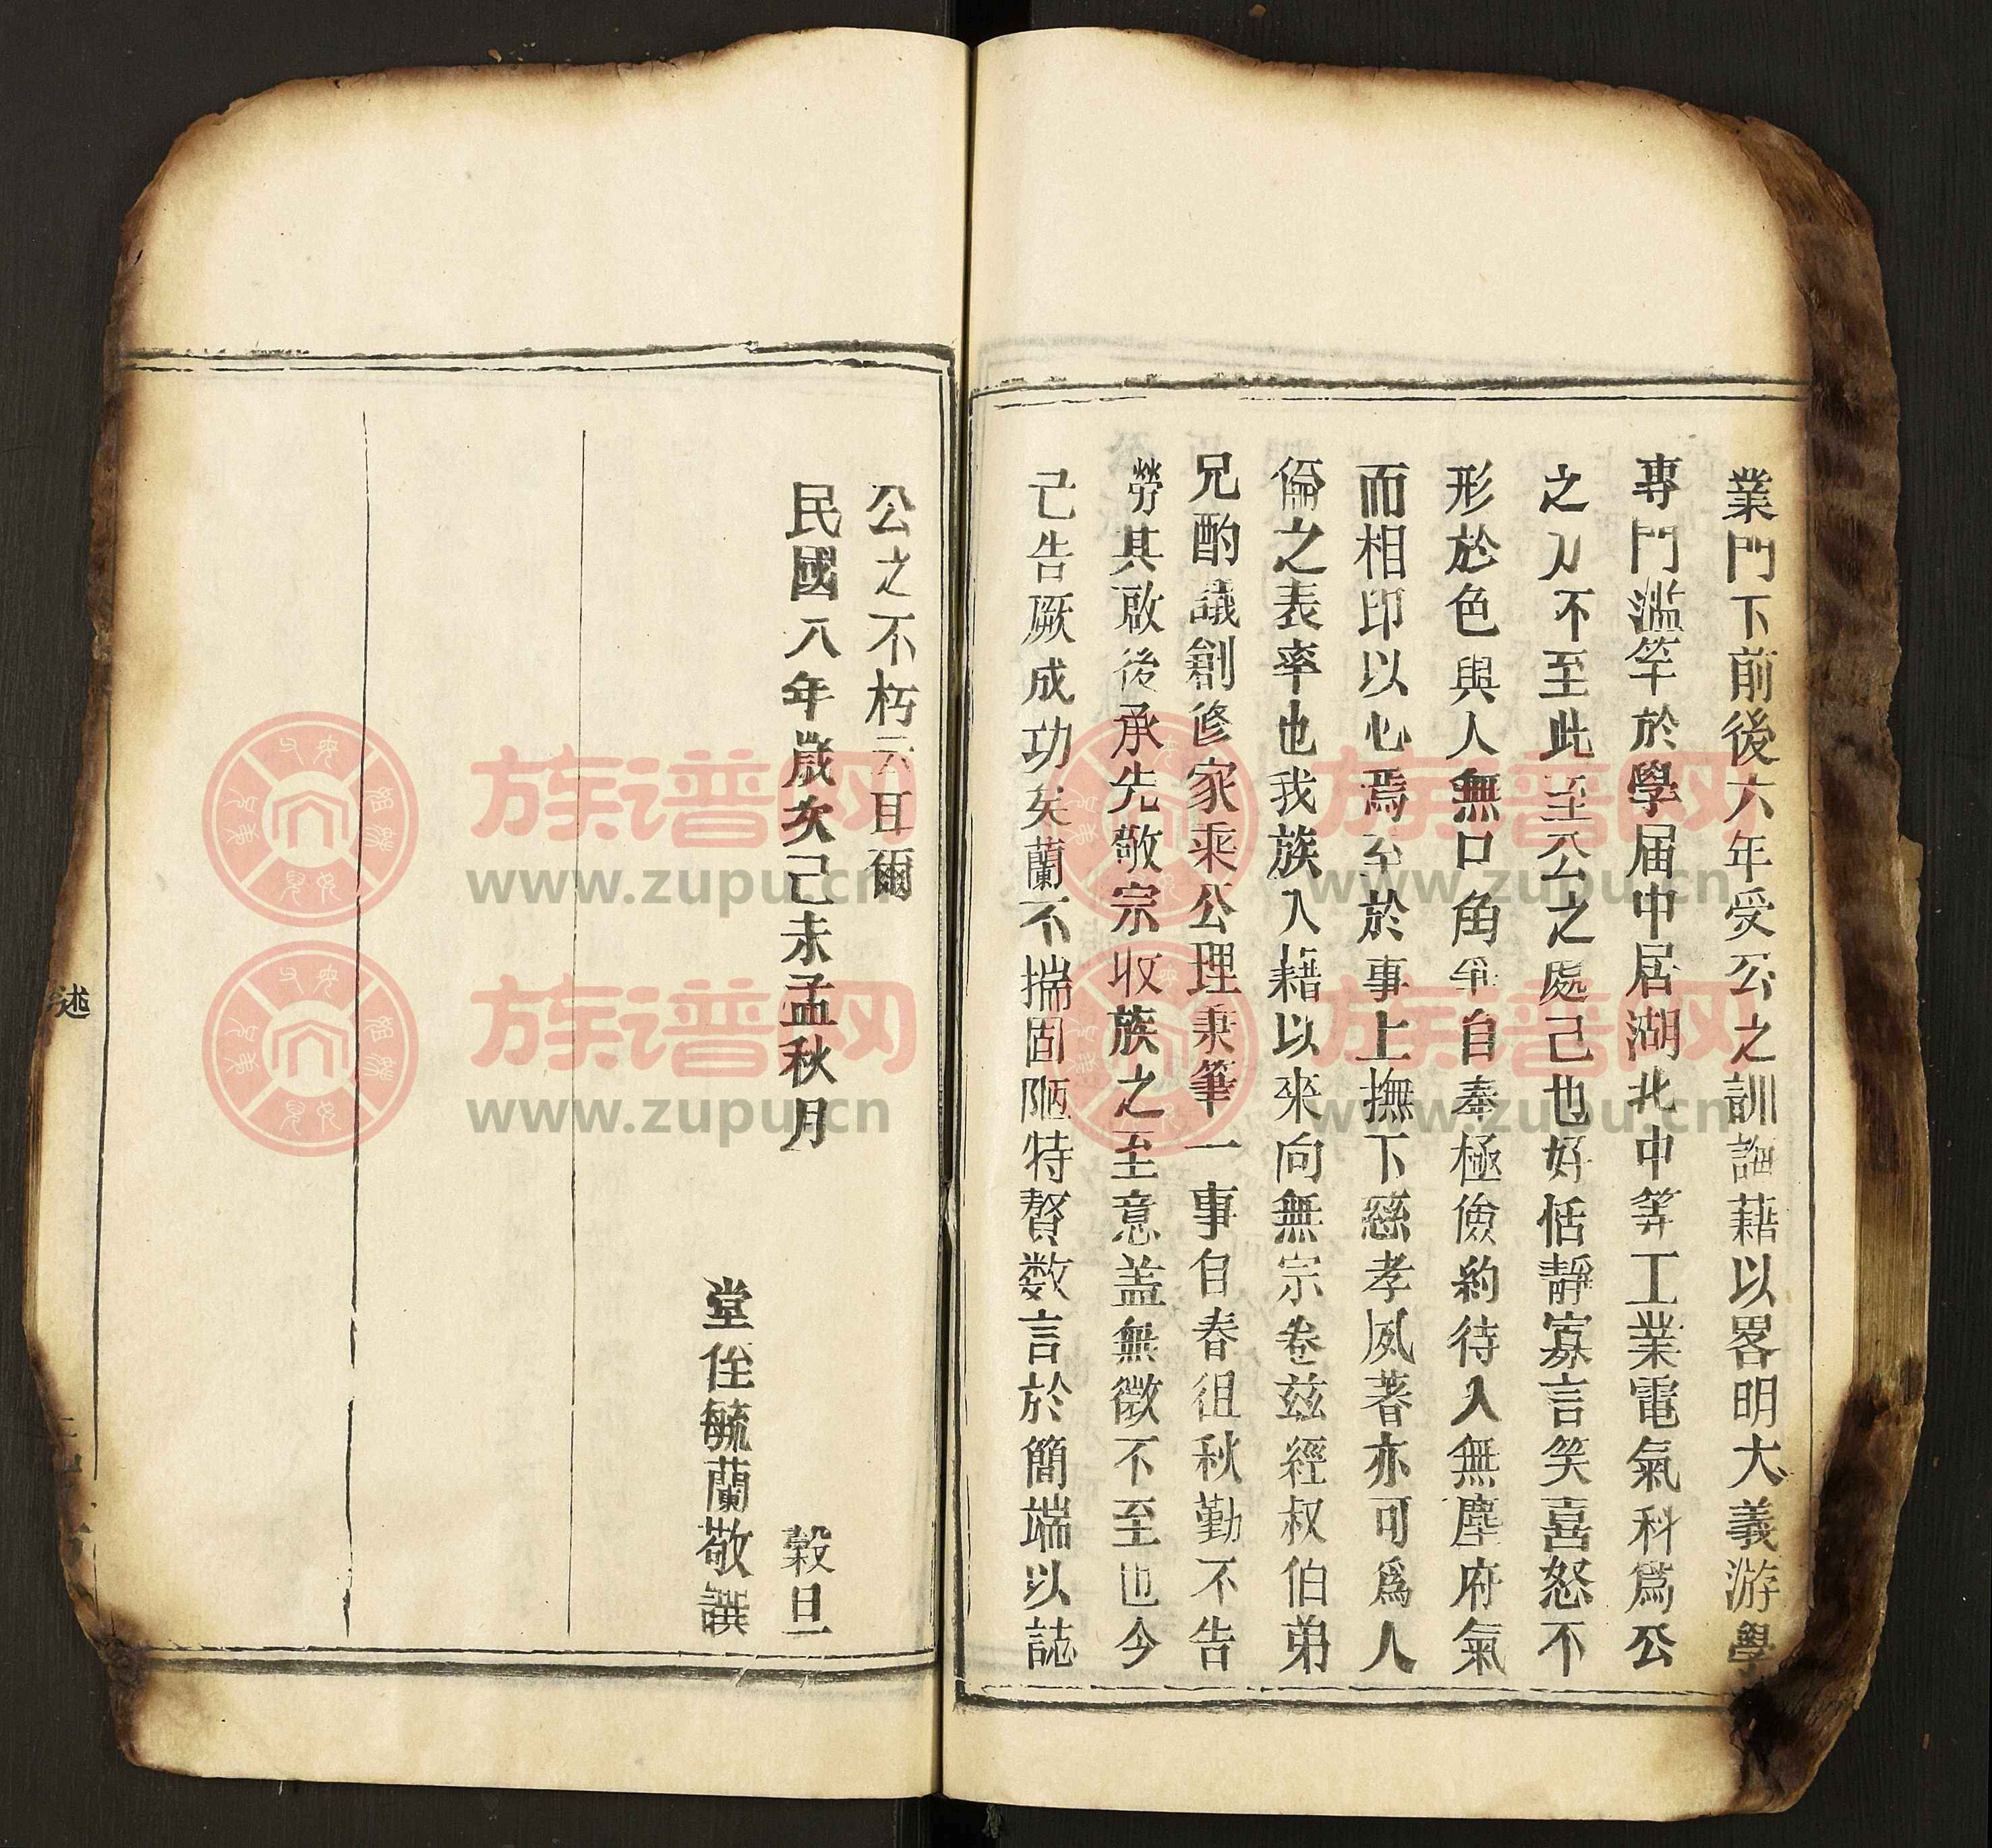 業門下前後六年受公之訓誨藉以畧明大義游學
專門濫竽於學届中居湖北中等工業電氣科爲公
之力不至此至公之處己也好恬靜寡言笑喜怒不
形於色與人無口角爭自奉極儉約待人無塵府氣
而相印以心焉至於事上撫下慈孝夙著亦可爲人
倫之表率也我族入藉以來向無宗卷兹經叔伯弟
兄酌議創修家乘公理秉筆一事自春徂秋勤不告
勞其啟後承先敬宗收族之至意盖無微不至也今
己告厥成功矣蘭不揣固陋特贅数言於簡端以誌
公之不朽云耳爾
民國八年歲次己未孟秋月 穀旦
堂侄毓蘭敬譔
述
族谱网
www.zupu.cn
族谱网
www.zupu.cn
族谱网
www.zupu.cn
族谱网
www.zupu.cn